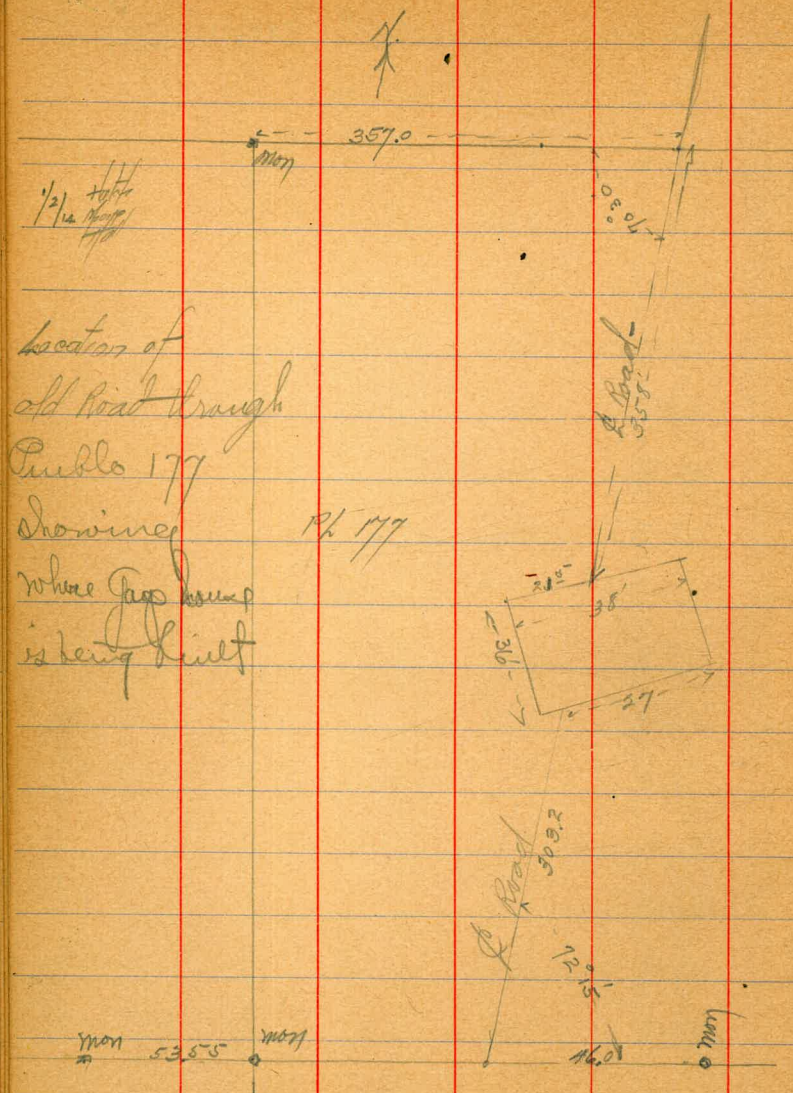 N
357.0
mon
1/2/12
70° 30'
Location of
old Road through
Pueblo 177
Showing
where Gaps house
is being built
PL 177
℄ Road
358'
21⁵
38'
36
27
℄ Road
303.2
72° 15'
mon
53.55
mon
46.0
mon